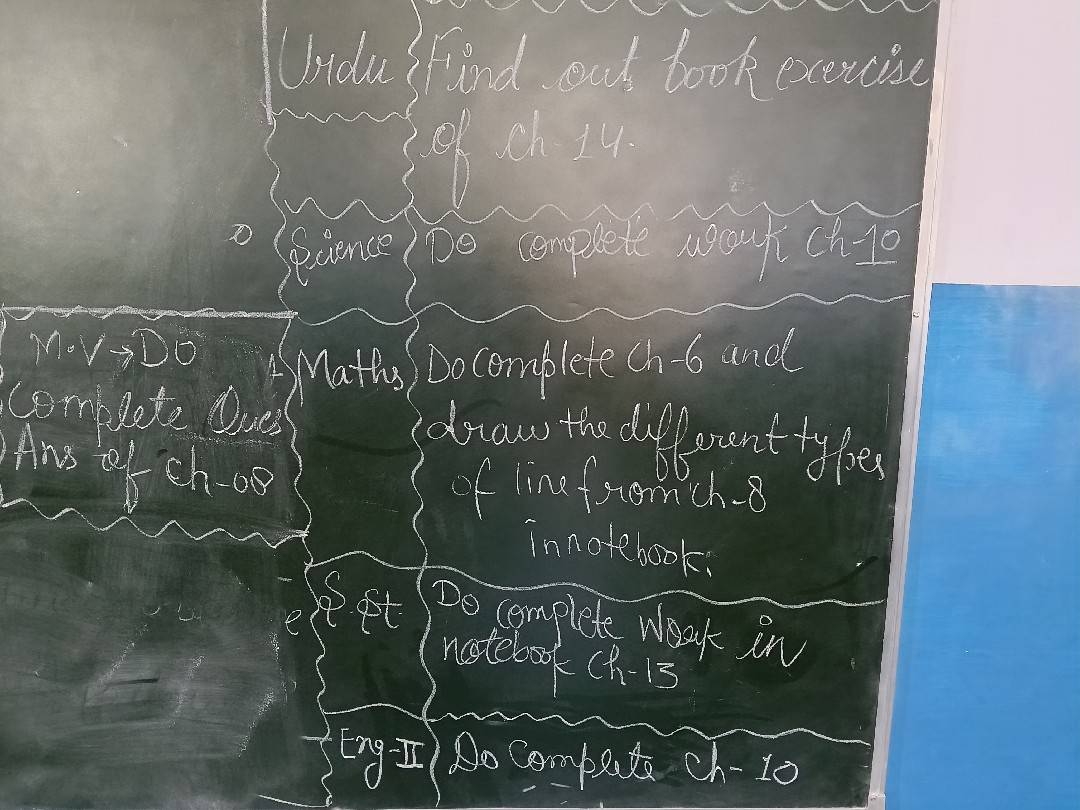 Urdu Find out book exercise
of ch-14.
Science Do complete work ch-10
Maths Do complete ch-6 and
draw the different types
of line from ch-8
in notebook.
S.St Do complete work in
notebook ch-13
Eng-II Do complete ch-10
M.V→Do
complete Ques
Ans of ch-08